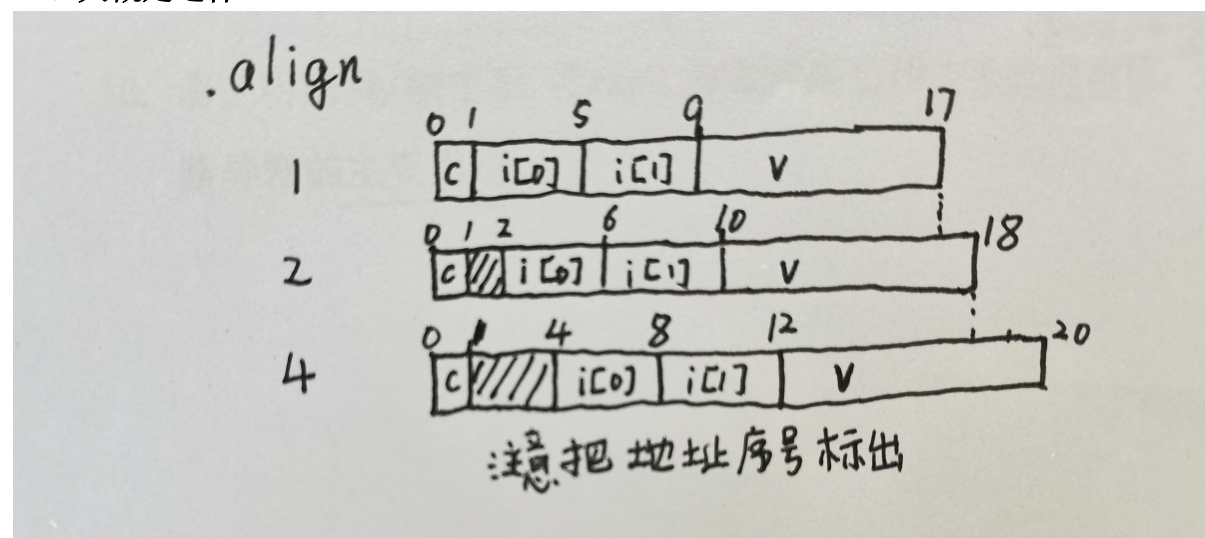 .align
0 1 5 9 17
1 c i[0] i[1] v
0 1 2 6 10 18
2 c i[0] i[1] v
0 1 4 8 12 20
4 c i[0] i[1] v
注意把地址序号标出